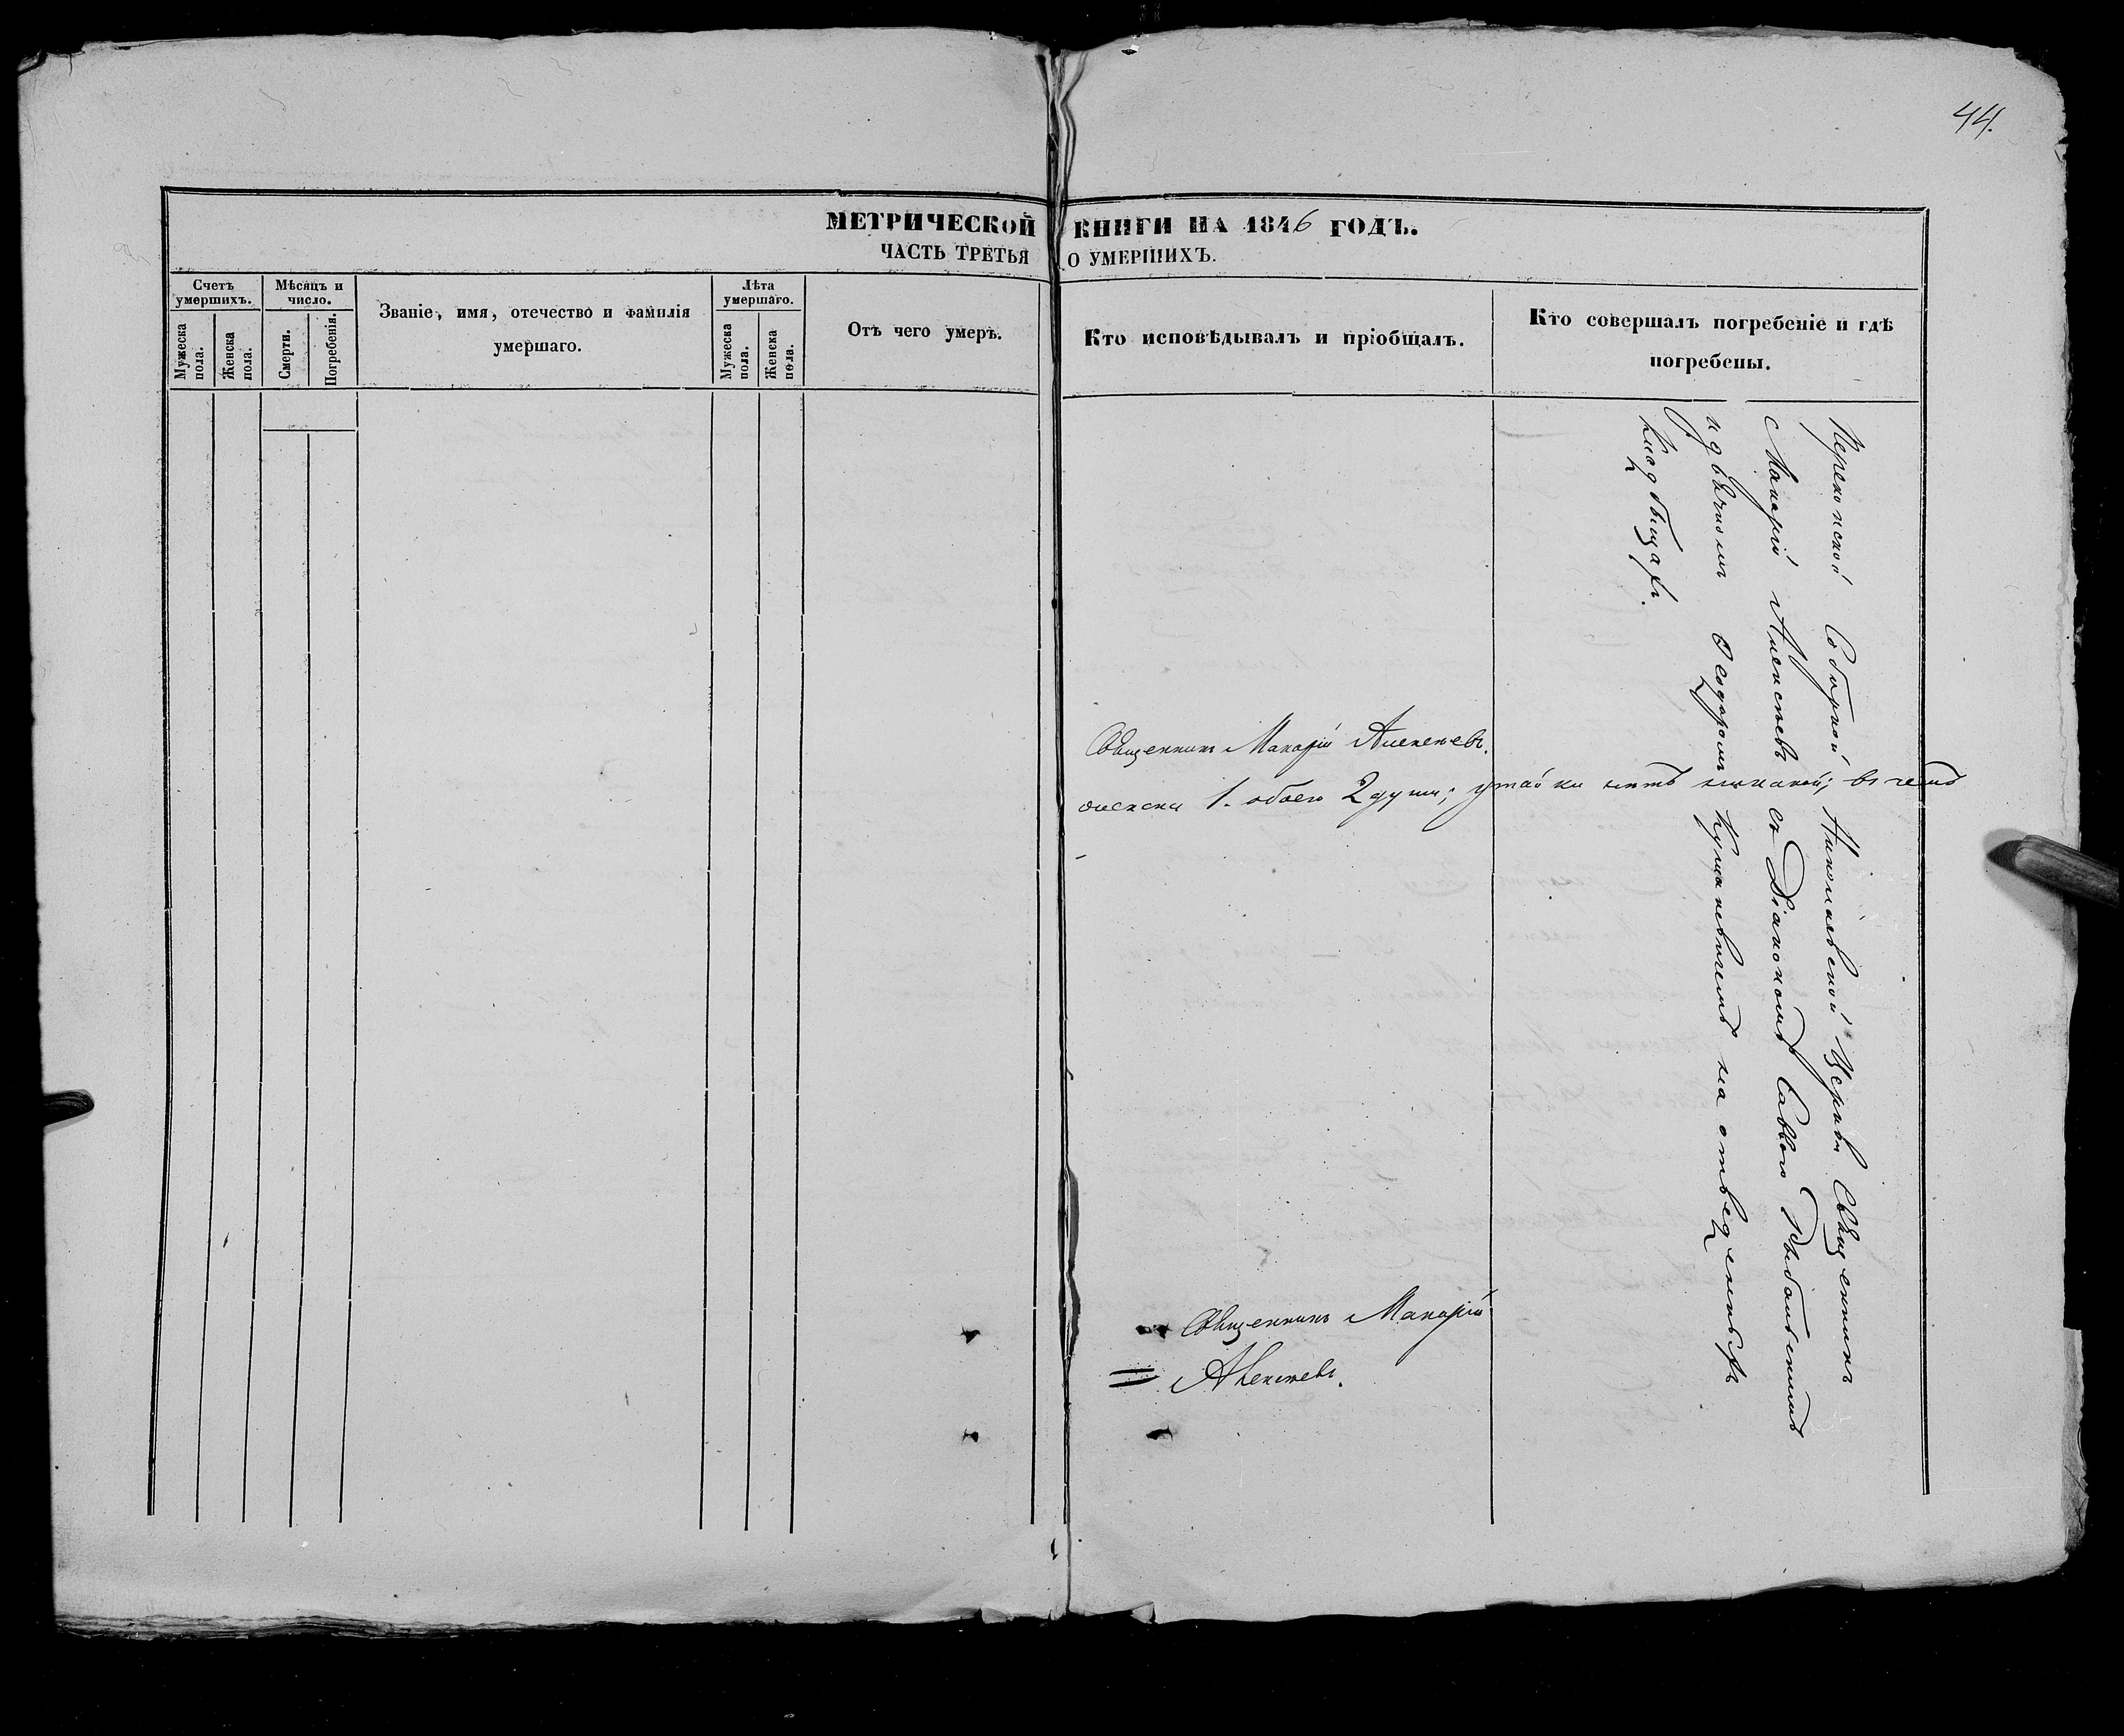 44.
МЕТРИЧЕСКОЙ КНИГИ НА 1846 ГОДЪ.
ЧАСТЬ ТРЕТЬЯ О УМЕРШИХЪ.
Счетъ умершихъ.
Мужеска пола.
Женска пола.
Мѣсяцъ и число.
Смерти.
Погребенія.
Званіе, имя, отечество и фамилія
умершаго.
Лѣта умершаго.
Мужеска пола.
Женска пола.
Отъ чего умеръ.
Кто исповѣдывалъ и пріобщалъ.
Кто совершалъ погребеніе и гдѣ
погребены.
Священникъ Макарій Алексѣевъ.
женска 1. обоего 2 души; утайки нѣтъ никакой; въ чемъ
Священникъ Макарій
Алексѣевъ.
Перекопской Соборной Николаевской Церкви Священникъ
Макарій Алексѣевъ съ Діакономъ Саввою Рыбальскимъ
и дьячкомъ Ѳеодоромъ на отведенныхъ
кладбищахъ.